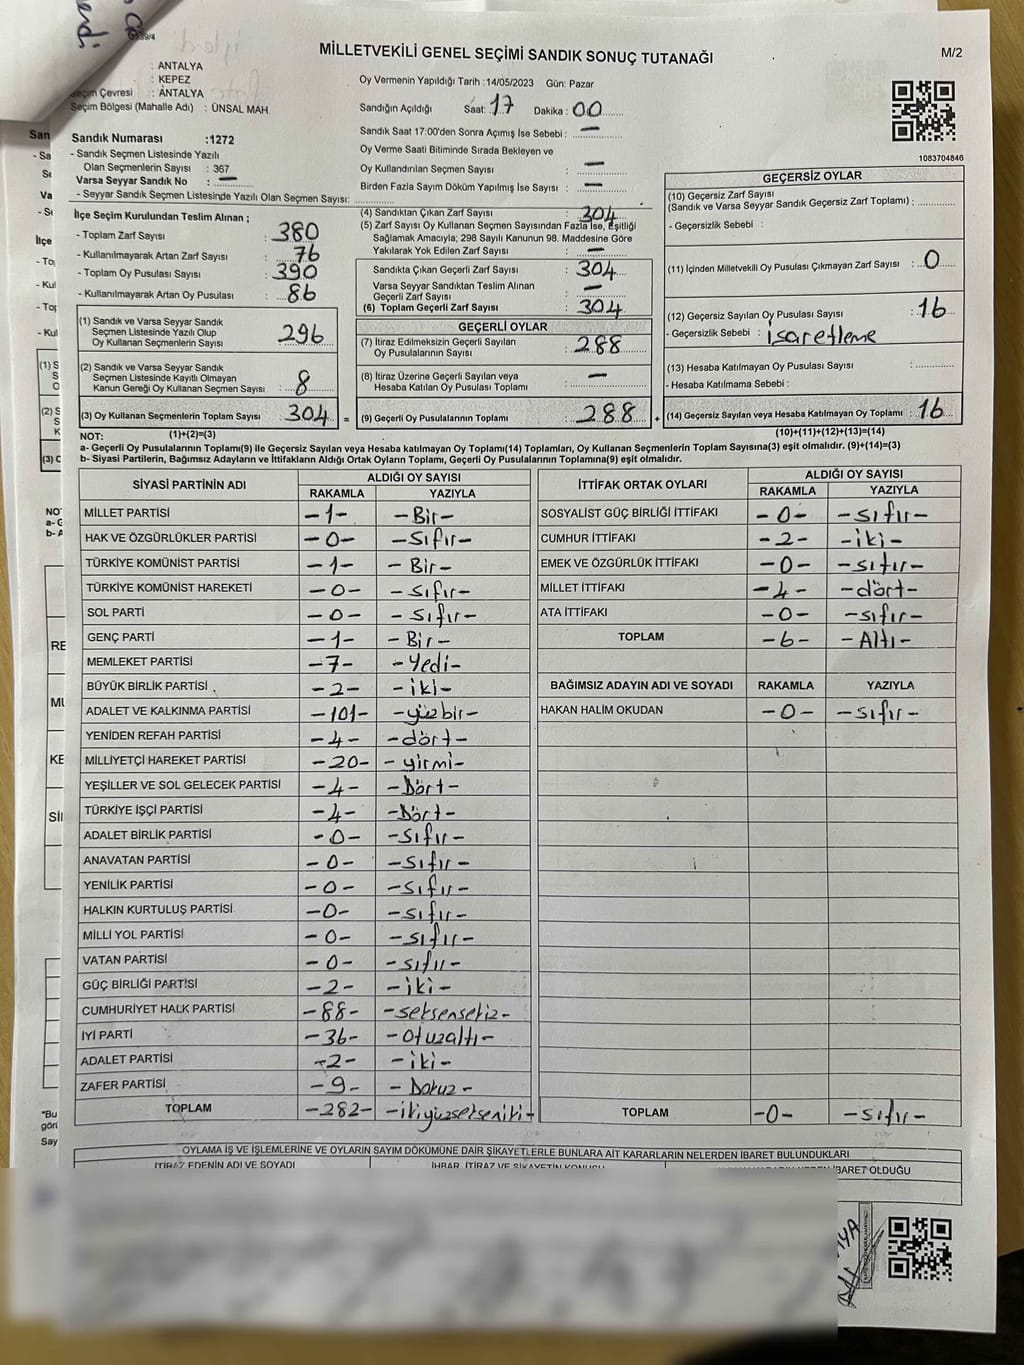 MİLLETVEKİLİ GENEL SEÇİMİ SANDIK SONUÇ TUTANAĞI
M/2
: ANTALYA
: KEPEZ
Seçim Çevresi : ANTALYA
Seçim Bölgesi (Mahalle Adı) : ÜNSAL MAH.
Oy Vermenin Yapıldığı Tarih :14/05/2023 Gün: Pazar
Sandığın Açıldığı Saat: 17 Dakika : 00
Sandık Saat 17:00'den Sonra Açımış İse Sebebi : —
Oy Verme Saati Bitiminde Sırada Bekleyen ve
Oy Kullandırılan Seçmen Sayısı : —
Birden Fazla Sayım Döküm Yapılmış İse Sayısı : —
1083704846
Sandık Numarası :1272
- Sandık Seçmen Listesinde Yazılı
Olan Seçmenlerin Sayısı : 367
Varsa Seyyar Sandık No : —
- Seyyar Sandık Seçmen Listesinde Yazılı Olan Seçmen Sayısı:
İlçe Seçim Kurulundan Teslim Alınan ;
- Toplam Zarf Sayısı : 380
- Kullanılmayarak Artan Zarf Sayısı : 76
- Toplam Oy Pusulası Sayısı : 390
- Kullanılmayarak Artan Oy Pusulası : 86
(1) Sandık ve Varsa Seyyar Sandık
Seçmen Listesinde Yazılı Olup
Oy Kullanan Seçmenlerin Sayısı : 296
(2) Sandık ve Varsa Seyyar Sandık
Seçmen Listesinde Kayıtlı Olmayan
Kanun Gereği Oy Kullanan Seçmen Sayısı : 8
(3) Oy Kullanan Seçmenlerin Toplam Sayısı : 304 =
(4) Sandıktan Çıkan Zarf Sayısı : 304
(5) Zarf Sayısı Oy Kullanan Seçmen Sayısından Fazla İse, Eşitliği
Sağlamak Amacıyla; 298 Sayılı Kanunun 98. Maddesine Göre
Yakılarak Yok Edilen Zarf Sayısı : —
Sandıkta Çıkan Geçerli Zarf Sayısı : 304
Varsa Seyyar Sandıktan Teslim Alınan
Geçerli Zarf Sayısı : —
(6) Toplam Geçerli Zarf Sayısı : 304
GEÇERLİ OYLAR
(7) İtiraz Edilmeksizin Geçerli Sayılan
Oy Pusulalarının Sayısı : 288
(8) İtiraz Üzerine Geçerli Sayılan veya
Hesaba Katılan Oy Pusulası Toplamı : —
(9) Geçerli Oy Pusulalarının Toplamı : 288 +
GEÇERSİZ OYLAR
(10) Geçersiz Zarf Sayısı
(Sandık ve Varsa Seyyar Sandık Geçersiz Zarf Toplamı) :
- Geçersizlik Sebebi :
(11) İçinden Milletvekili Oy Pusulası Çıkmayan Zarf Sayısı : 0
(12) Geçersiz Sayılan Oy Pusulası Sayısı : 16
- Geçersizlik Sebebi : işaretleme
(13) Hesaba Katılmayan Oy Pusulası Sayısı :
- Hesaba Katılmama Sebebi :
(14) Geçersiz Sayılan veya Hesaba Katılmayan Oy Toplamı : 16
NOT: (1)+(2)=(3) (10)+(11)+(12)+(13)=(14)
a- Geçerli Oy Pusulalarının Toplamı(9) ile Geçersiz Sayılan veya Hesaba Katılmayan Oy Toplamı(14) Toplamları, Oy Kullanan Seçmenlerin Toplam Sayısına(3) eşit olmalıdır. (9)+(14)=(3)
b- Siyasi Partilerin, Bağımsız Adayların ve İttifakların Aldığı Oyların Toplamı, Geçerli Oy Pusulalarının Toplamına(9) eşit olmalıdır.
SİYASİ PARTİNİN ADI ALDIĞI OY SAYISI
RAKAMLA YAZIYLA
MİLLET PARTİSİ -1- -Bir-
HAK VE ÖZGÜRLÜKLER PARTİSİ -0- -Sıfır-
TÜRKİYE KOMÜNİST PARTİSİ -1- -Bir-
TÜRKİYE KOMÜNİST HAREKETİ -0- -sıfır-
SOL PARTİ -0- -sıfır-
GENÇ PARTİ -1- -Bir-
MEMLEKET PARTİSİ -7- -Yedi-
BÜYÜK BİRLİK PARTİSİ -2- -iki-
ADALET VE KALKINMA PARTİSİ -101- -yüzbir-
YENİDEN REFAH PARTİSİ -4- -dört-
MİLLİYETÇİ HAREKET PARTİSİ -20- -yirmi-
YEŞİLLER VE SOL GELECEK PARTİSİ -4- -Dört-
TÜRKİYE İŞÇİ PARTİSİ -4- -Dört-
ADALET BİRLİK PARTİSİ -0- -sıfır-
ANAVATAN PARTİSİ -0- -sıfır-
YENİLİK PARTİSİ -0- -sıfır-
HALKIN KURTULUŞ PARTİSİ -0- -sıfır-
MİLLİ YOL PARTİSİ -0- -sıfır-
VATAN PARTİSİ -0- -sıfır-
GÜÇ BİRLİĞİ PARTİSİ -2- -iki-
CUMHURİYET HALK PARTİSİ -88- -seksensekiz-
İYİ PARTİ -36- -otuzaltı-
ADALET PARTİSİ -2- -iki-
ZAFER PARTİSİ -9- -Dokuz-
TOPLAM -282- -ikiyüzsekseniki-
İTTİFAK ORTAK OYLARI ALDIĞI OY SAYISI
RAKAMLA YAZIYLA
SOSYALİST GÜÇ BİRLİĞİ İTTİFAKI -0- -sıfır-
CUMHUR İTTİFAKI -2- -iki-
EMEK VE ÖZGÜRLÜK İTTİFAKI -0- -sıfır-
MİLLET İTTİFAKI -4- -dört-
ATA İTTİFAKI -0- -sıfır-
TOPLAM -6- -Altı-
BAĞIMSIZ ADAYIN ADI VE SOYADI RAKAMLA YAZIYLA
HAKAN HALİM OKUDAN -0- -sıfır-
TOPLAM -0- -sıfır-
OYLAMA İŞ VE İŞLEMLERİNE VE OYLARIN SAYIM DÖKÜMÜNE DAİR ŞİKAYETLERLE BUNLARA AİT KARARLARIN NELERDEN İBARET BULUNDUKLARI
İTİRAZ EDENİN ADI VE SOYADI
İHBAR, İTİRAZ VE ŞİKAYETİN KONUSU
İBARET OLDUĞU